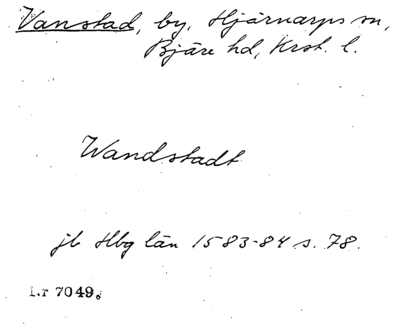 Vanstad, by, Hjärnarps sn,
Bjäre hd, Krst. l.
Wandstadt
jb Hbg län 1583-84 s. 78.
l.r 7049.